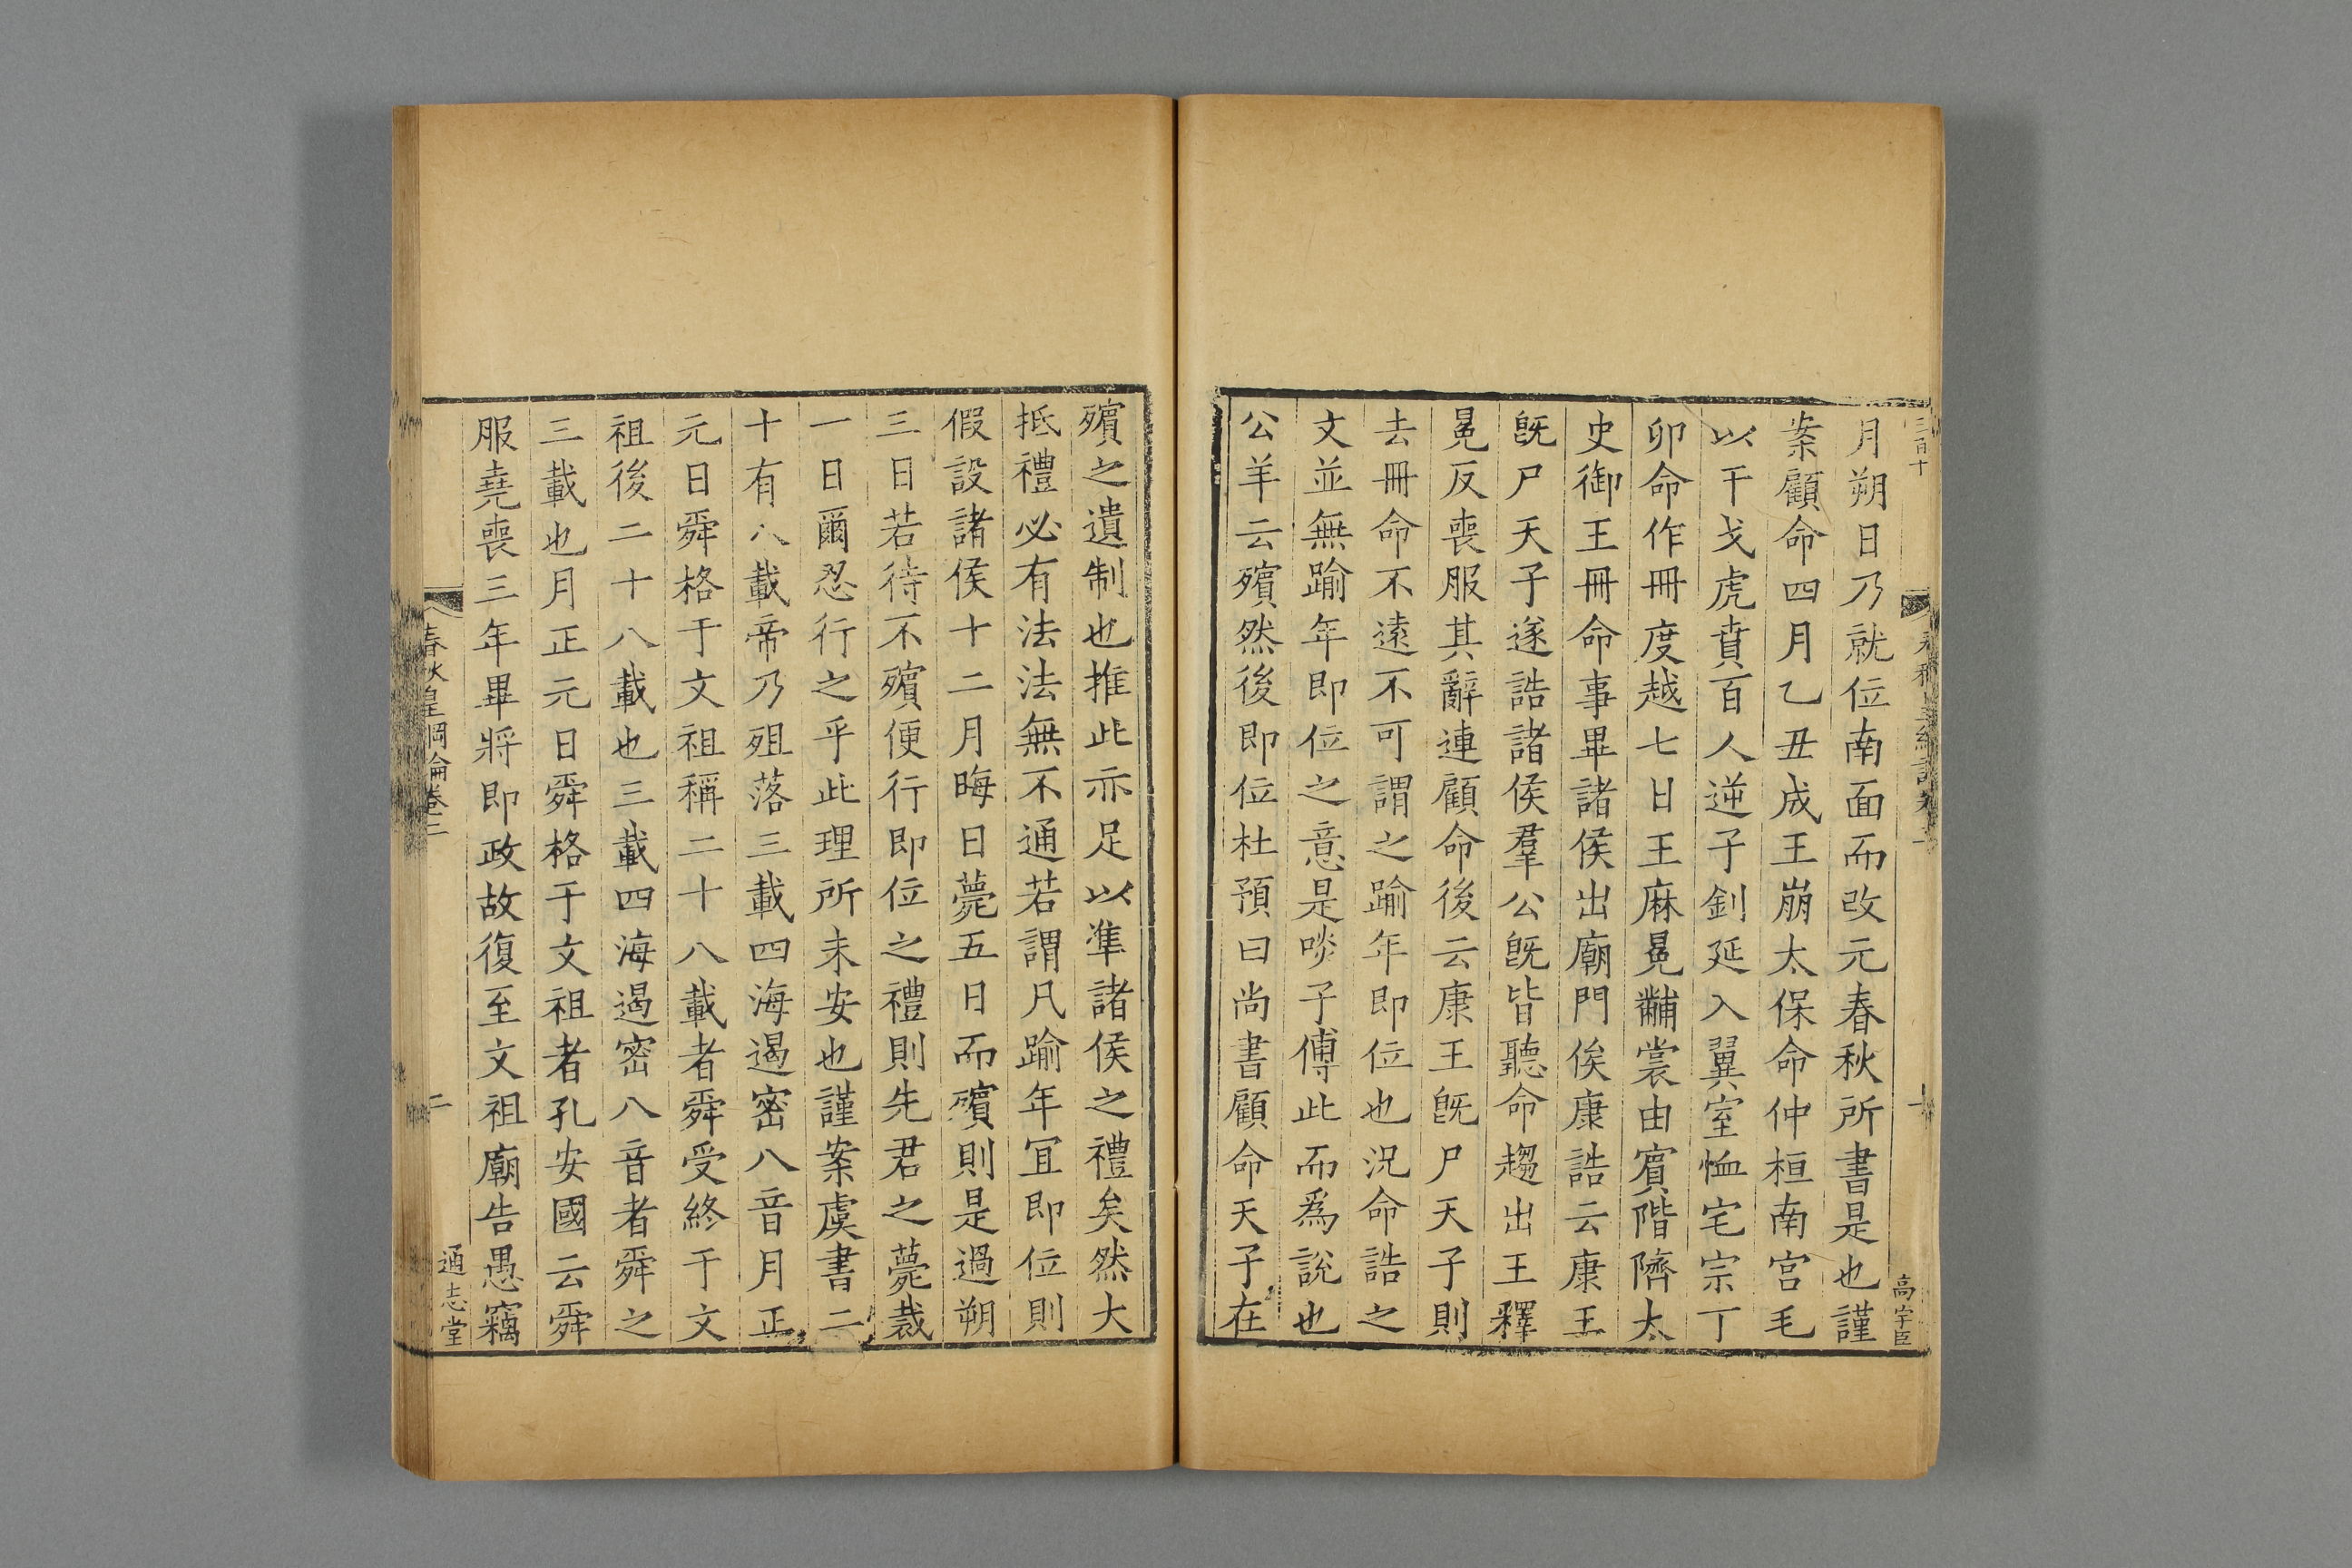 三百十
高宇臣
月朔日乃就位南面而改元春秋所書是也謹
案顧命四月乙丑成王崩太保命仲桓南宮毛
以干戈虎賁百人逆子釗延入翼室恤宅宗丁
卯命作冊度越七日王麻冕黼裳由賓階隮太
史御王冊命事畢諸侯出廟門俟康誥云康王
旣尸天子遂誥諸侯羣公旣皆聽命趨出王釋
冕反喪服其辭連顧命後云康王旣尸天子則
去冊命不遠不可謂之踰年即位也況命誥之
文並無踰年即位之意是啖子傅此而爲說也
公羊云殯然後即位杜預曰尚書顧命天子在
殯之遺制也推此亦足以準諸侯之禮矣然大
抵禮必有法法無不通若謂凡踰年冝即位則
假設諸侯十二月晦日薨五日而殯則是過朔
三日若待不殯便行即位之禮則先君之薨裁
一日爾忍行之乎此理所未安也謹案虞書二
十有八載帝乃殂落三載四海遏密八音月正
元日舜格于文祖稱二十八載者舜受終于文
祖後二十八載也三載四海遏密八音者舜之
三載也月正元日舜格于文祖者孔安國云舜
服堯喪三年畢將即政故復至文祖廟告愚竊
春秋皇綱論卷三
二
通志堂